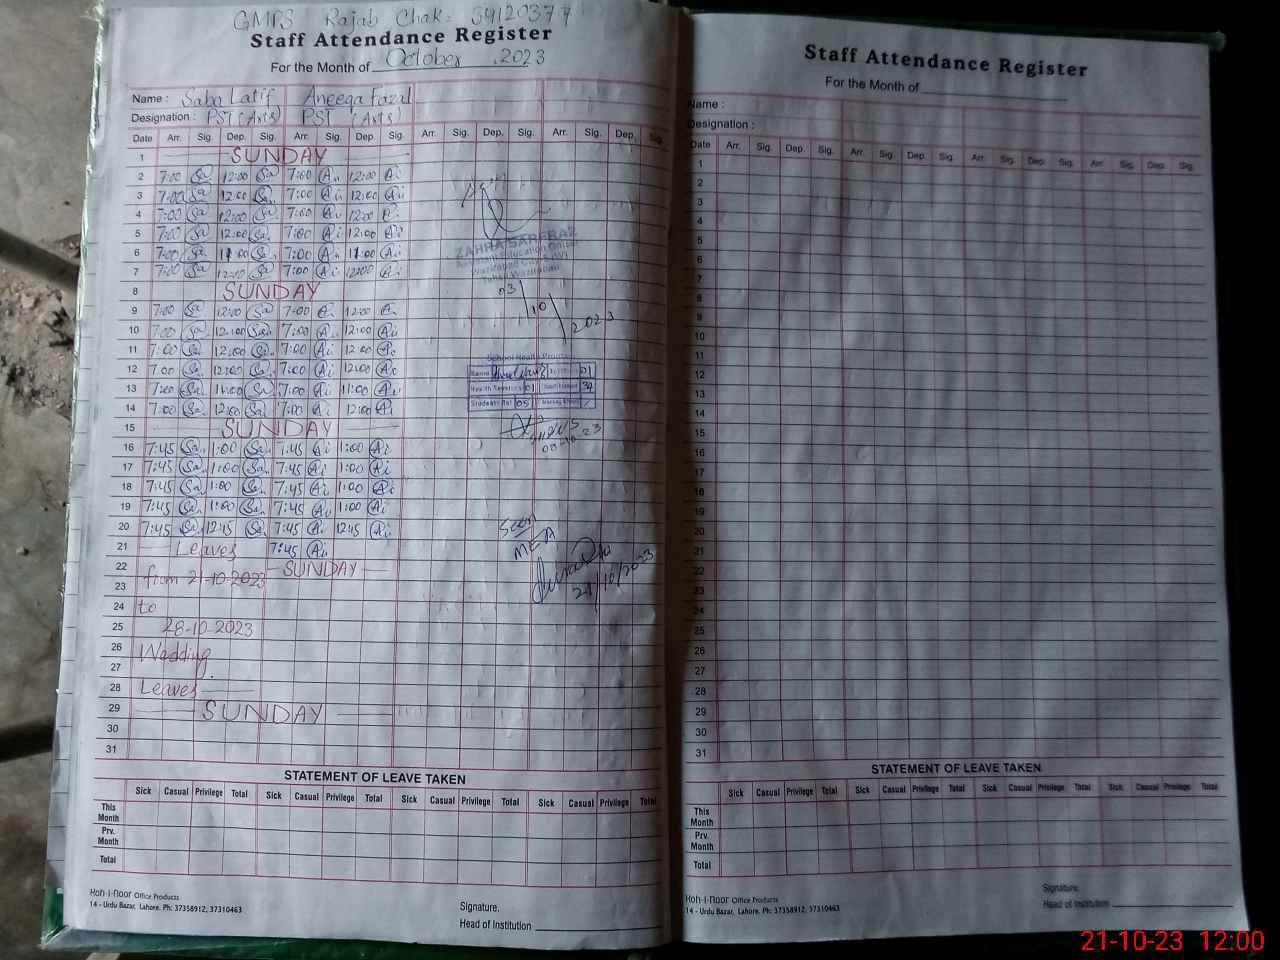 GMPS Rajab Chak. 34120377
Staff Attendance Register
For the Month of October .2023
Name : Saba Latif Aneeqa Fazal
Designation : PST (Arts) PST (Arts)
Date Arr. Sig. Dep. Sig. Arr. Sig. Dep. Sig. Arr. Sig. Dep. Sig. Arr. Sig. Dep. Sig.
1 SUNDAY
2 7:00 Sa 12:00 Sa 7:00 Ai 12:00 Ai
3 7:00 Sa 12:00 Sa 7:00 Ai 12:00 Ai
4 7:00 Sa 12:00 Sa 7:00 Ai 12:00
5 7:00 Sa 12:00 Sa 7:00 Ai 12:00 Ai
6 7:00 Sa 11:00 Sa 7:00 Ai 11:00 Ai
7 7:00 Sa 12:00 Sa 7:00 Ai 12:00 Ai
8 SUNDAY
9 7:00 Sa 12:00 Sa 7:00 Ai 12:00 Ai
10 7:00 Sa 12:00 Sa 7:00 Ai 12:00 Ai
11 7:00 Sa 12:00 Sa 7:00 Ai 12:00 Ai
12 7:00 Sa 12:00 Sa 7:00 Ai 12:00 Ai
13 7:00 Sa 11:00 Sa 7:00 Ai 11:00 Ai
14 7:00 Sa 12:00 Sa 7:00 Ai 12:00 Ai
15 SUNDAY
16 7:45 Sa 1:00 Sa 7:45 Ai 1:00 Ai
17 7:45 Sa 1:00 Sa 7:45 Ai 1:00 Ai
18 7:45 Sa 1:00 Sa 7:45 Ai 1:00 Ai
19 7:45 Sa 1:00 Sa 7:45 Ai 1:00 Ai
20 7:45 Sa 12:45 Sa 7:45 Ai 12:45 Ai
21 Leaves 7:45 Ai
22 SUNDAY
from 21-10-2023
23
24 to
25 28-10-2023
26 Wedding
27
28 Leaves
29 SUNDAY
30
31
ZAHRA SARFRAZ
Assistant Education Officer
Wazirabad
Tehsil Wazirabad
03/10/2023
School Health
Name
Health Services 01
Students Ref 05
03-10-23
Seen
MEA
21/10/2023
STATEMENT OF LEAVE TAKEN
Sick Casual Privilege Total Sick Casual Privilege Total Sick Casual Privilege Total Sick Casual Privilege Total
This Month
Prv. Month
Total
Koh-i-Noor Office Products
14 - Urdu Bazar, Lahore. Ph: 37358912, 37310463
Signature.
Head of Institution
Staff Attendance Register
For the Month of
Name :
Designation :
Date Arr. Sig. Dep. Sig. Arr. Sig. Dep. Sig. Arr. Sig. Dep. Sig. Arr. Sig. Dep. Sig.
1
2
3
4
5
6
7
8
9
10
11
12
13
14
15
16
17
18
19
20
21
22
23
24
25
26
27
28
29
30
31
STATEMENT OF LEAVE TAKEN
Sick Casual Privilege Total Sick Casual Privilege Total Sick Casual Privilege Total Sick Casual Privilege Total
This Month
Prv. Month
Total
Koh-i-Noor Office Products
14 - Urdu Bazar, Lahore. Ph: 37358912, 37310463
Signature.
Head of Institution
21-10-23 12:00